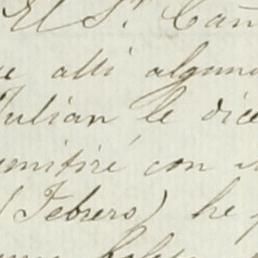 El Sr. Cañ
e alli alguna
Julian le dice
mitiré con
(Febrero) he